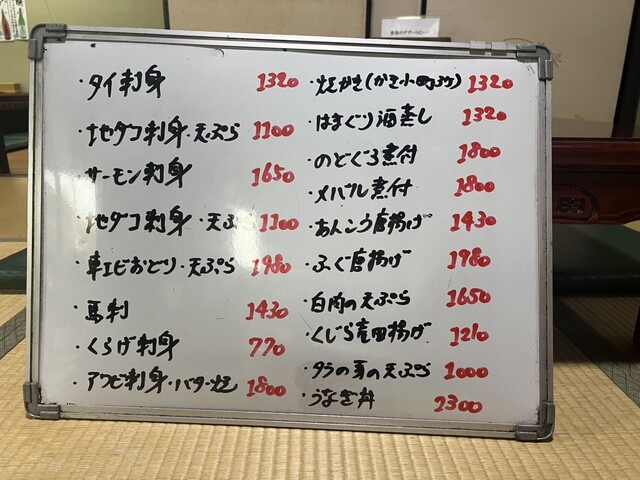 ・タイ刺身 1320
・地ダコ刺身・天ぷら 1100
・サーモン刺身 1650
・地ダコ刺身・天ぷら 1100
・車エビおどり・天ぷら 1980
・馬刺 1430
・くらげ刺身 770
・アワビ刺身・バター焼 1800
・焼がき(かき小町 1320
・はまぐり酒蒸し 1320
・のどぐろ煮付 1800
・メバル煮付 1800
・あんこう唐揚げ 1430
・ふぐ唐揚げ 1980
・白肉の天ぷら 1650
・くじら竜田揚げ 1210
・タラの芽の天ぷら 1000
・うなぎ丼 2300